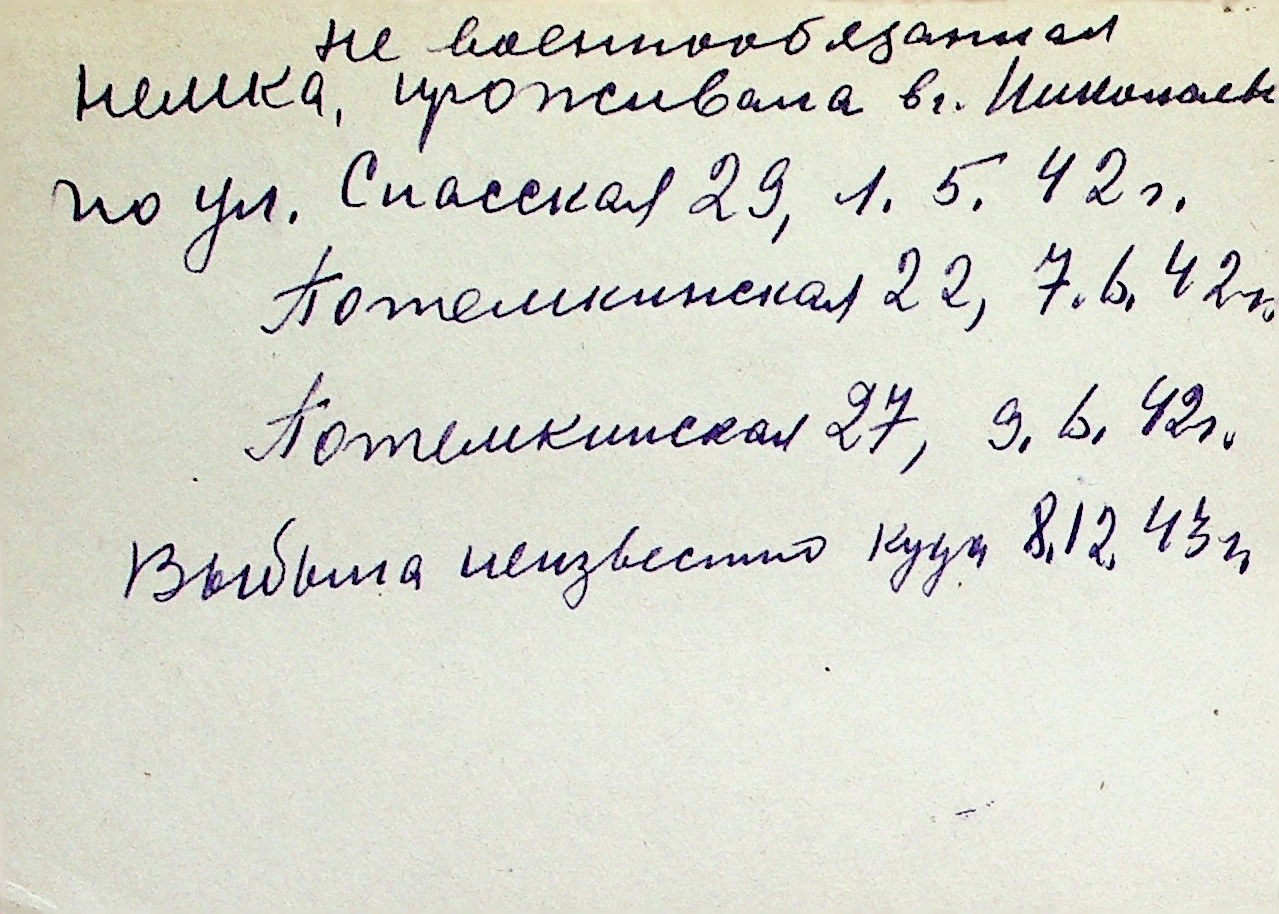 не военнообязанная
немка, проживала в г. Николаев
по ул. Спасская 29, 1. 5. 42 г.
Потемкинская 22, 7. 6. 42 г.
Потемкинская 27, 9. 6. 42 г.
Выбыла неизвестно куда 8.12.43 г.